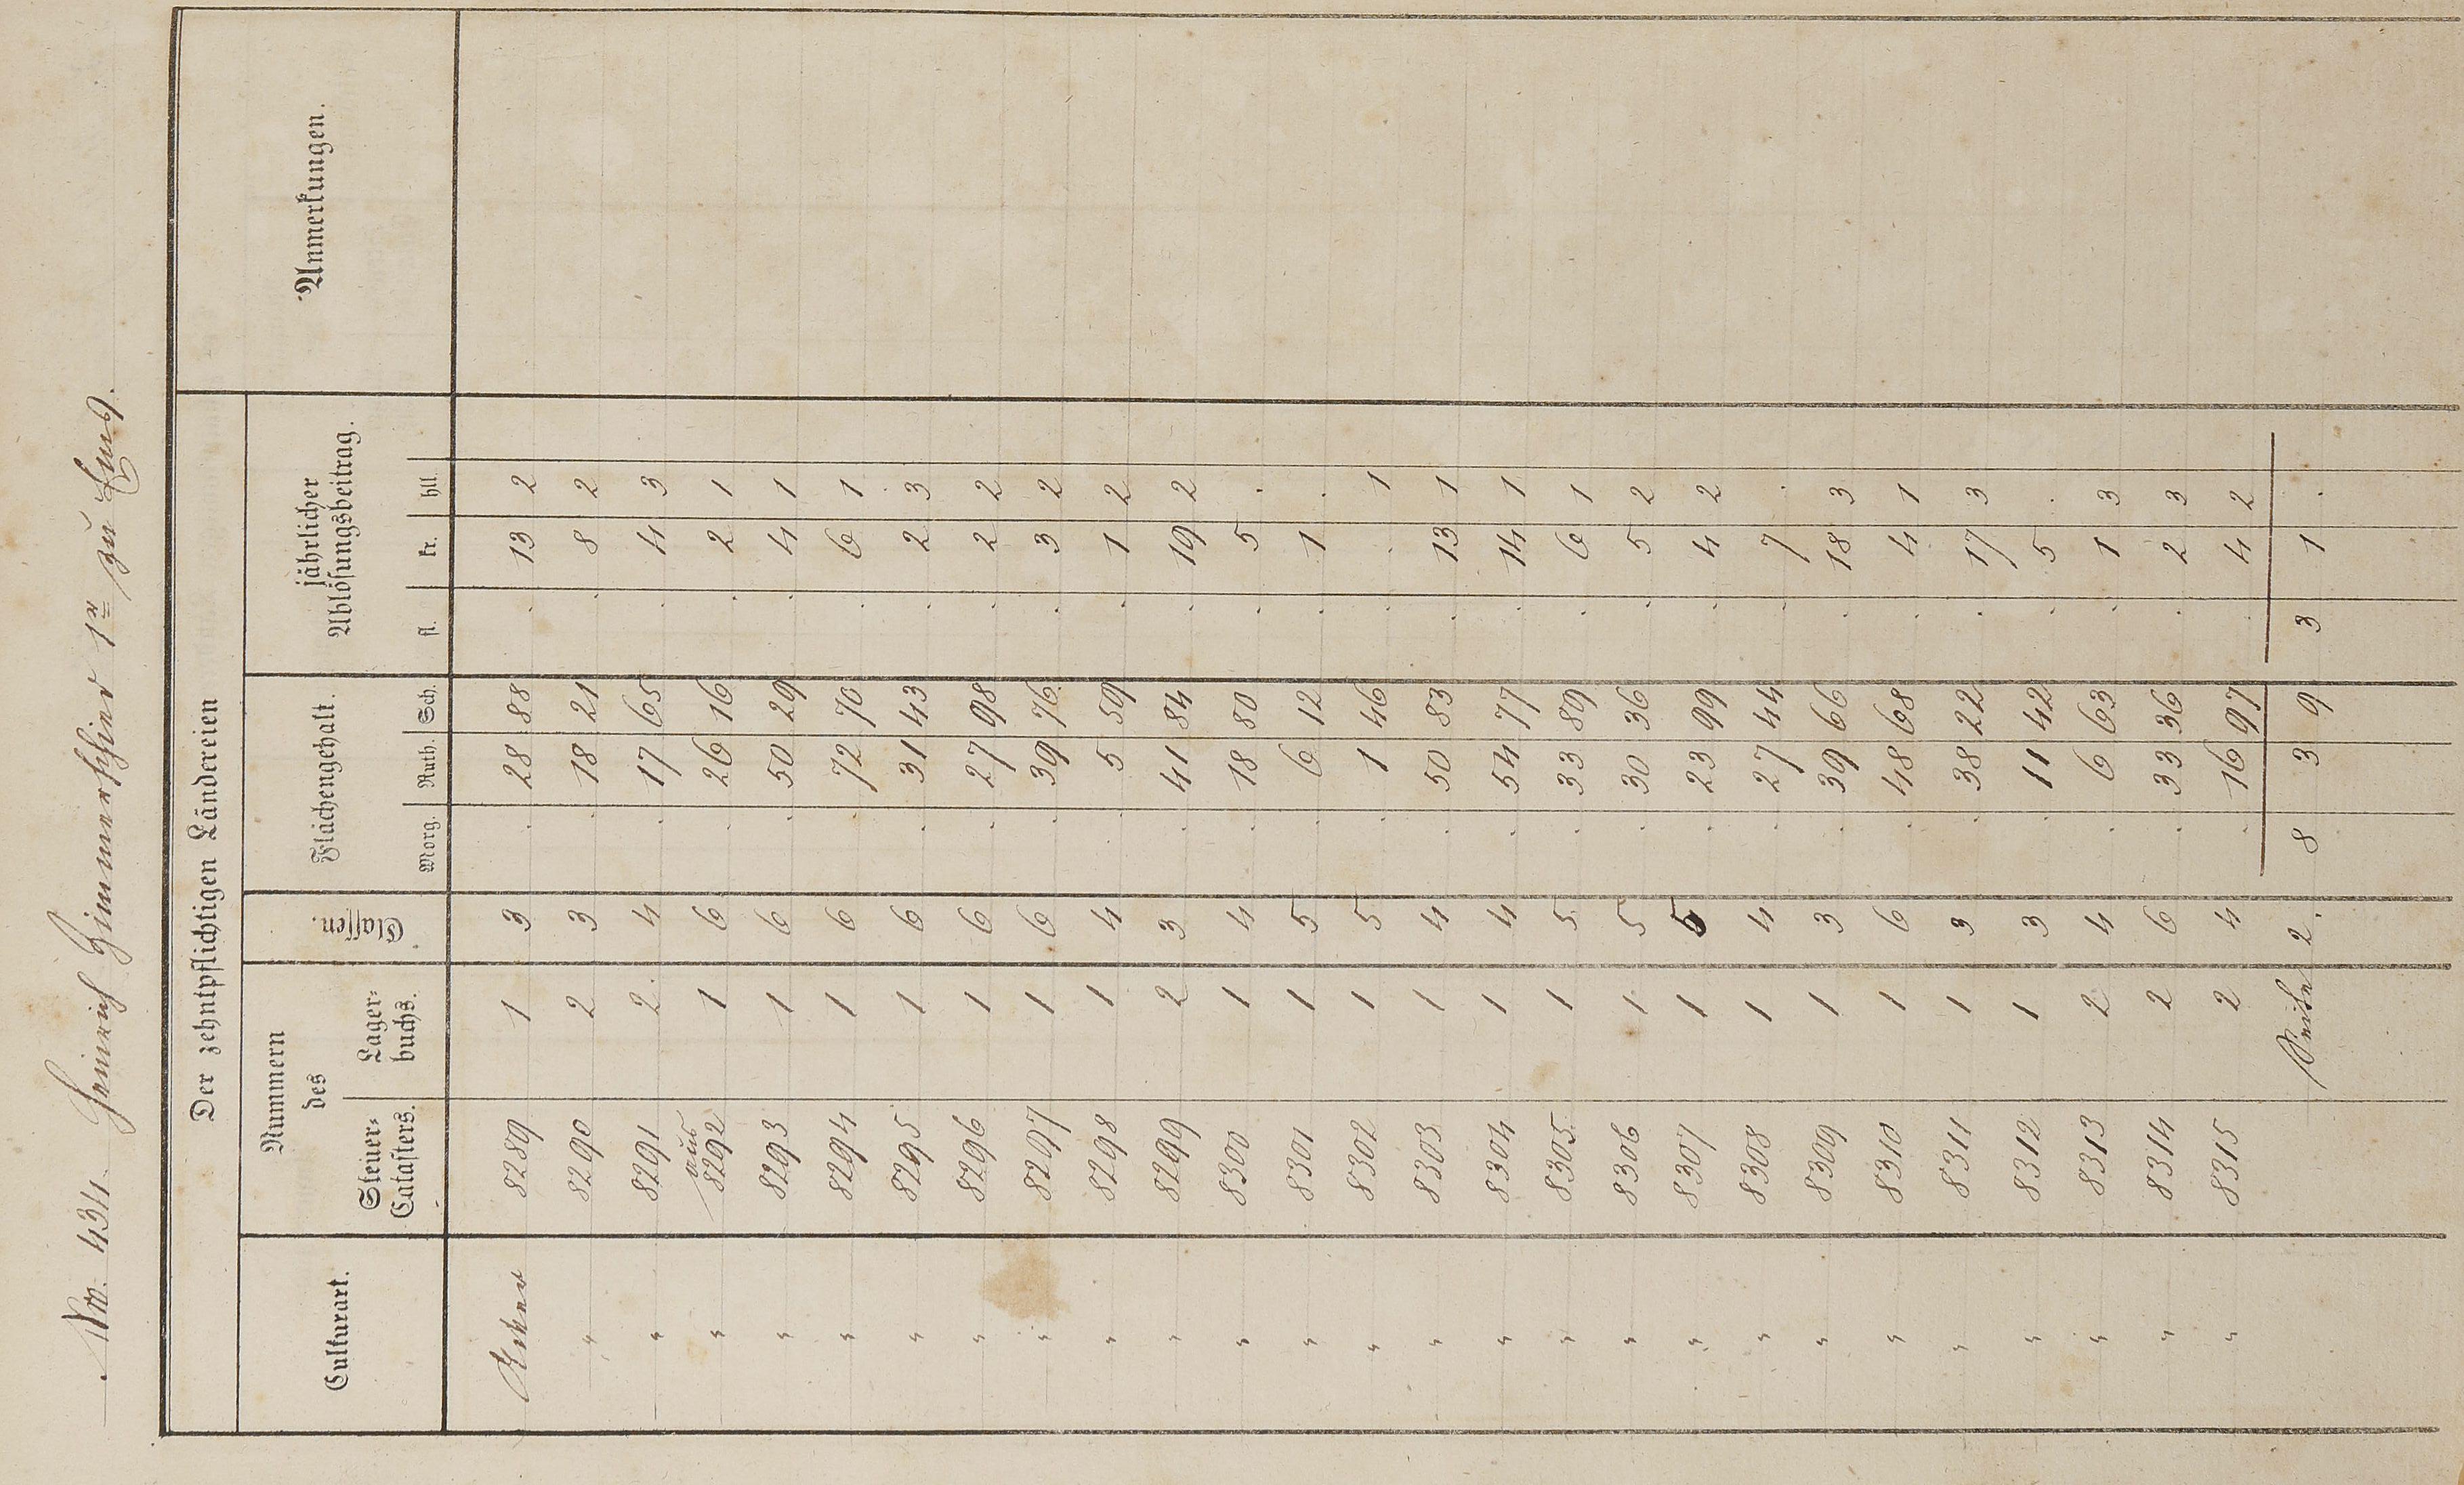 Nro. 434. Heinrich Himmerschied 1r zu Ems.
Der zehntpflichtigen Ländereien
Culturart. Nummern des Classen. Flächengehalt. jährlicher Ablösungsbeitrag. Anmerkungen.
Steuer-Catasters. Lager-buchs. Morg. Ruth. Sch. fl. kr. hll.
Acker 8289 1 3 . 28 88 . 13 2
" 8290 2 3 . 18 21 . 8 2
" 8291 2 4 . 17 65 . 4 3
" aus 8292 1 6 . 26 16 . 2 1
" 8293 1 6 . 50 29 . 4 1
" 8294 1 6 . 72 70 . 6 1
" 8295 1 6 . 31 43 . 2 3
" 8296 1 6 . 27 98 . 2 2
" 8297 1 6 . 39 76 . 3 2
" 8298 1 4 . 5 59 . 1 2
" 8299 2 3 . 41 84 . 19 2
" 8300 1 4 . 18 80 . 5 .
" 8301 1 5 . 6 12 . 1 .
" 8302 1 5 . 1 46 . . 1
" 8303 1 4 . 50 83 . 13 1
" 8304 1 4 . 54 77 . 14 1
" 8305 1 5 . 33 89 . 6 1
" 8306 1 5 . 30 36 . 5 2
" 8307 1 5 . 23 99 . 4 2
" 8308 1 4 . 27 44 . 7 .
" 8309 1 3 . 39 66 . 18 3
" 8310 1 6 . 48 68 . 4 1
" 8311 1 3 . 38 22 . 17 3
" 8312 1 3 . 11 42 . 5 .
" 8313 2 4 . 6 63 . 1 3
" 8314 2 6 . 33 36 . 2 3
" 8315 2 4 . 16 97 . 4 2
Seite 2. 8 3 9 3 1 .